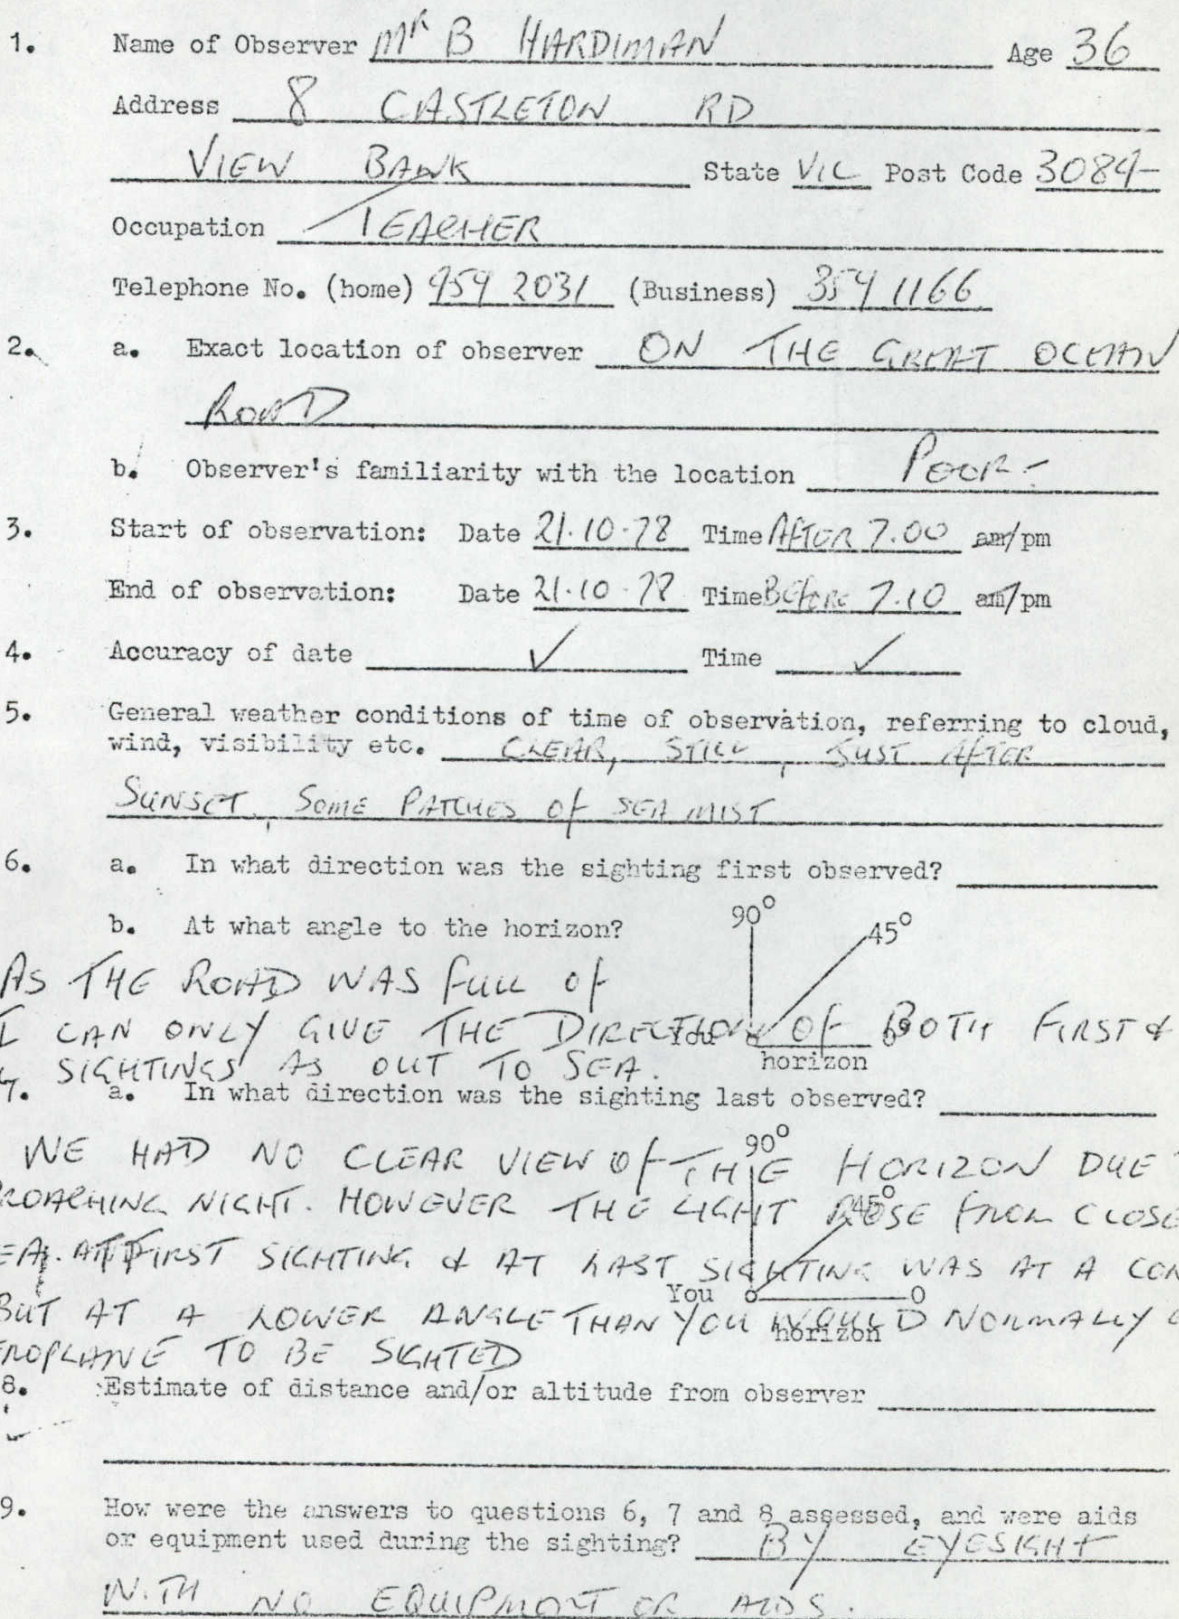 1. Name of Observer Mr B HARDIMAN Age 36
Address 8 CASTLETON RD
VIEW BANK State VIC Post Code 3084
Occupation TEACHER
Telephone No. (home) 459 2031 (Business) 354 1166
2. a. Exact location of observer ON THE GREAT OCEAN
ROAD
b. Observer's familiarity with the location POOR
3. Start of observation: Date 21.10.78 Time AFTER 7.00 am/pm
End of observation: Date 21.10.78 Time BEFORE 7.10 am/pm
4. Accuracy of date ✓ Time ✓
5. General weather conditions of time of observation, referring to cloud,
wind, visibility etc. CLEAR, STILL, JUST AFTER
SUNSET, SOME PATCHES OF SEA MIST
6. a. In what direction was the sighting first observed?
b. At what angle to the horizon? 90° 45°
AS THE ROAD WAS FULL OF
I CAN ONLY GIVE THE DIRECTION OF BOTH FIRST &
SIGHTINGS AS OUT TO SEA. horizon
7. a. In what direction was the sighting last observed?
90°
WE HAD NO CLEAR VIEW OF THE HORIZON DUE
ROACHING NIGHT. HOWEVER THE LIGHT ROSE FROM CLOSE
45°
EA. AT FIRST SIGHTING & AT LAST SIGHTING WAS AT A CON
You O
BUT AT A LOWER ANGLE THAN YOU WOULD NORMALLY
horizon
EROPLANE TO BE SIGHTED
8. Estimate of distance and/or altitude from observer
9. How were the answers to questions 6, 7 and 8 assessed, and were aids
or equipment used during the sighting? BY EYESIGHT
WITH NO EQUIPMENT OR AIDS.